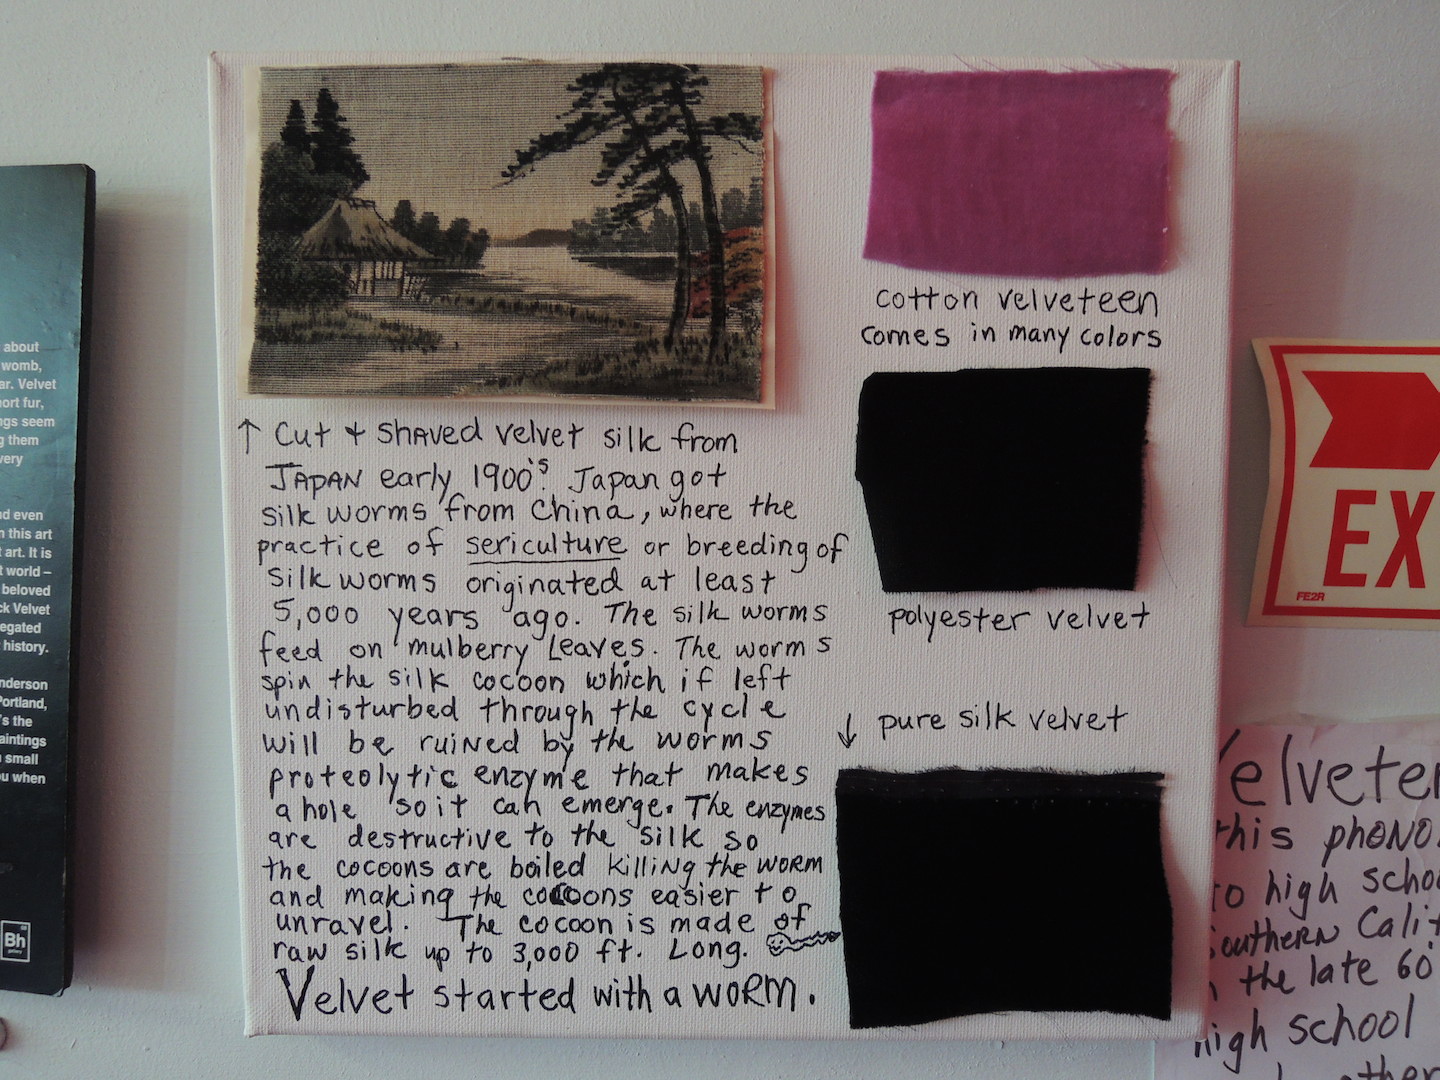 about
womb,
Velvet
fur,
seem
them
very
even
this art
art. It is
world –
beloved
Velvet
history.
Portland,
the
small
when
Bh
↑ Cut + SHAVED velvet silk from
JAPAN early 1900's. Japan got
silk worms from China, where the
practice of sericulture or breeding of
silk worms originated at least
5,000 years ago. The silk worms
feed on mulberry Leaves. The worms
spin the silk cocoon which if left
undisturbed through the cycle
will be ruined by the worms
proteolytic enzyme that makes
a hole so it can emerge. The enzymes
are destructive to the silk so
the cocoons are boiled killing the worm
and making the cocoons easier to
unravel. The cocoon is made of
raw silk up to 3,000 ft. Long.
Velvet started with a worm.
cotton velveteen
comes in many colors
polyester velvet
↓ pure silk velvet
EX
FE2R
this
to high
the late 60
high school